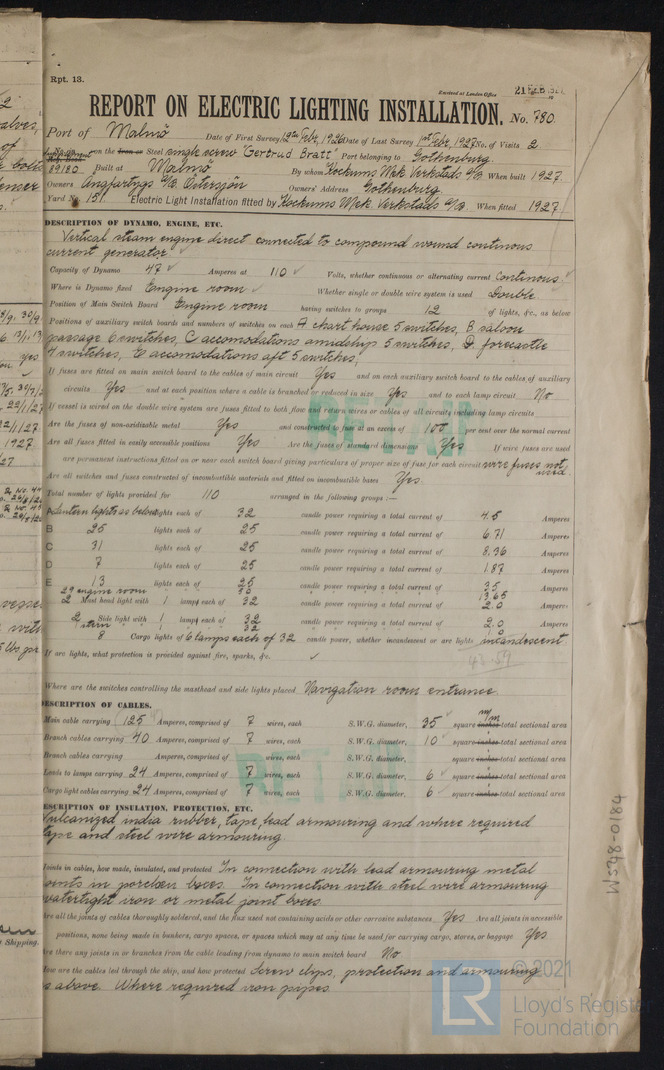 Rpt. 13.
Received at London Office 21 FEB 1927
REPORT ON ELECTRIC LIGHTING INSTALLATION. No. 780
Port of Malmö Date of First Survey 12th Febr. 1926 Date of Last Survey 1st Febr. 1927 No. of Visits 2
on the Iron or Steel single screw "Gertrud Bratt" Port belonging to Gothenburg.
89180 Built at Malmö By whom Kockums Mek. Verkstads A/B When built 1927.
Owners Angfartygs A/B. Östersjön Owners' Address Gothenburg.
Yard No. 151. Electric Light Installation fitted by Kockums Mek. Verkstads A/B. When fitted 1927.
DESCRIPTION OF DYNAMO, ENGINE, ETC.
Vertical steam engine direct connected to compound wound continous
current generator.
Capacity of Dynamo 47 Amperes at 110 Volts, whether continuous or alternating current Continous.
Where is Dynamo fixed Engine room Whether single or double wire system is used Double.
Position of Main Switch Board Engine room having switches to groups 12 of lights, &c., as below
Positions of auxiliary switch boards and numbers of switches on each A chart house 5 switches, B saloon
passage 6 switches, C accomodations amidships 5 switches, D. forecastle
4 switches, E accomodations aft 5 switches,
If fuses are fitted on main switch board to the cables of main circuit Yes and on each auxiliary switch board to the cables of auxiliary
circuits Yes and at each position where a cable is branched or reduced in size Yes and to each lamp circuit No
If vessel is wired on the double wire system are fuses fitted to both flow and return wires or cables of all circuits including lamp circuits
Are the fuses of non-oxidizable metal Yes and constructed to fuse at an excess of 100 per cent over the normal current
Are all fuses fitted in easily accessible positions Yes Are the fuses of standard dimensions Yes If wire fuses are used
are permanent instructions fitted on or near each switch board giving particulars of proper size of fuse for each circuit wire fuses not used.
Are all switches and fuses constructed of incombustible materials and fitted on incombustible bases Yes.
Total number of lights provided for 110 arranged in the following groups :—
A Lantern lights as below lights each of 32 candle power requiring a total current of 4.5 Amperes
B 25 lights each of 25 candle power requiring a total current of 6.71 Amperes
C 31 lights each of 25 candle power requiring a total current of 8.36 Amperes
D 7 lights each of 25 candle power requiring a total current of 1.87 Amperes
E 13 lights each of 25 candle power requiring a total current of 3.5 Amperes
29 engine room 50 13.65
2 Mast head light with 1 lamps each of 32 candle power requiring a total current of 2.0 Amperes
2 Side light with 1 lamps each of 32 candle power requiring a total current of 2.0 Amperes
8 Cargo lights of 6 lamps each of 32 candle power, whether incandescent or arc lights incandescent
If arc lights, what protection is provided against fire, sparks, &c.
Where are the switches controlling the masthead and side lights placed Navigation room entrance.
DESCRIPTION OF CABLES.
Main cable carrying 125 Amperes, comprised of 7 wires, each S.W.G. diameter, 35 square m/m inches total sectional area
Branch cables carrying 40 Amperes, comprised of 7 wires, each S.W.G. diameter, 10 square inches total sectional area
Branch cables carrying Amperes, comprised of wires, each S.W.G. diameter, square inches total sectional area
Leads to lamps carrying 24 Amperes, comprised of 7 wires, each S.W.G. diameter, 6 square inches total sectional area
Cargo light cables carrying 24 Amperes, comprised of 7 wires, each S.W.G. diameter, 6 square inches total sectional area
DESCRIPTION OF INSULATION, PROTECTION, ETC.
Vulcanized india rubber, tape, lead armouring and where required
tape and steel wire armouring.
Joints in cables, how made, insulated, and protected In connection with lead armouring metal
joints in porcelain boxes. In connection with steel wire armouring
watertight iron or metal joint boxes.
Are all the joints of cables thoroughly soldered, and the flux used not containing acids or other corrosive substances Yes Are all joints in accessible
positions, none being made in bunkers, cargo spaces, or spaces which may at any time be used for carrying cargo, stores, or baggage Yes
Are there any joints in or branches from the cable leading from dynamo to main switch board No
How are the cables led through the ship, and how protected Screw clips, protection and armouring
as above. Where required iron pipes.
RETAIN
RETAIN
W548-0184
© 2021
Lloyd's Register
Foundation
LR